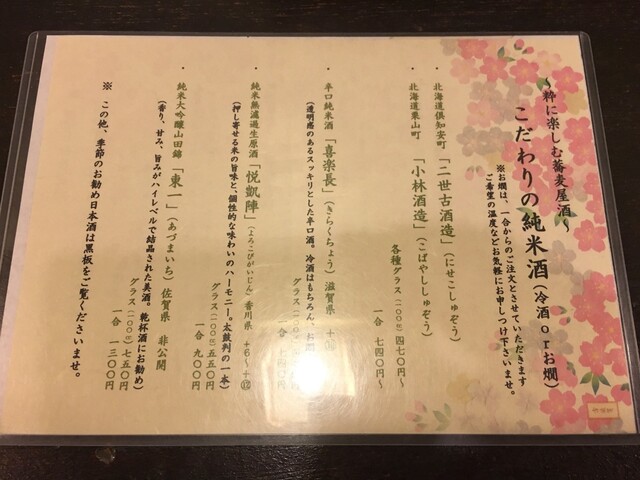 ～粋に楽しむ蕎麦屋酒～
こだわりの純米酒（冷酒ｏｒお燗）
※お燗は、一合からのご注文とさせていただきます
ご希望の温度などお気軽にお申しつけ下さいませ。
・北海道倶知安町「二世古酒造」（にせこしゅぞう）
・北海道栗山町「小林酒造」（こばやししゅぞう）
各種グラス（一〇〇㏄）四七〇円～
一合 七四〇円～
・辛口純米酒「喜楽長」（きらくちょう）滋賀県
（透明感のあるスッキリとした辛口酒。冷酒はもちろん、お燗
グラス（一〇〇
一合 七四〇
・純米無濾過生原酒「悦凱陣」（よろこびがいじん）香川県 ＋６～＋⑫
（押し寄せる米の旨味と、個性的な味わいのハーモニー。太鼓判の一本）
グラス（一〇〇㏄）五五〇円
一合 九〇〇円
・純米大吟醸山田錦「東一」（あづまいち）佐賀県 非公開
（香り、甘み、旨みがハイレベルで結晶された美酒。乾杯酒にお勧め）
グラス（一〇〇㏄）七五〇円
一合 一三〇〇円
※ この他、季節のお勧め日本酒は黒板をご覧くださいませ。